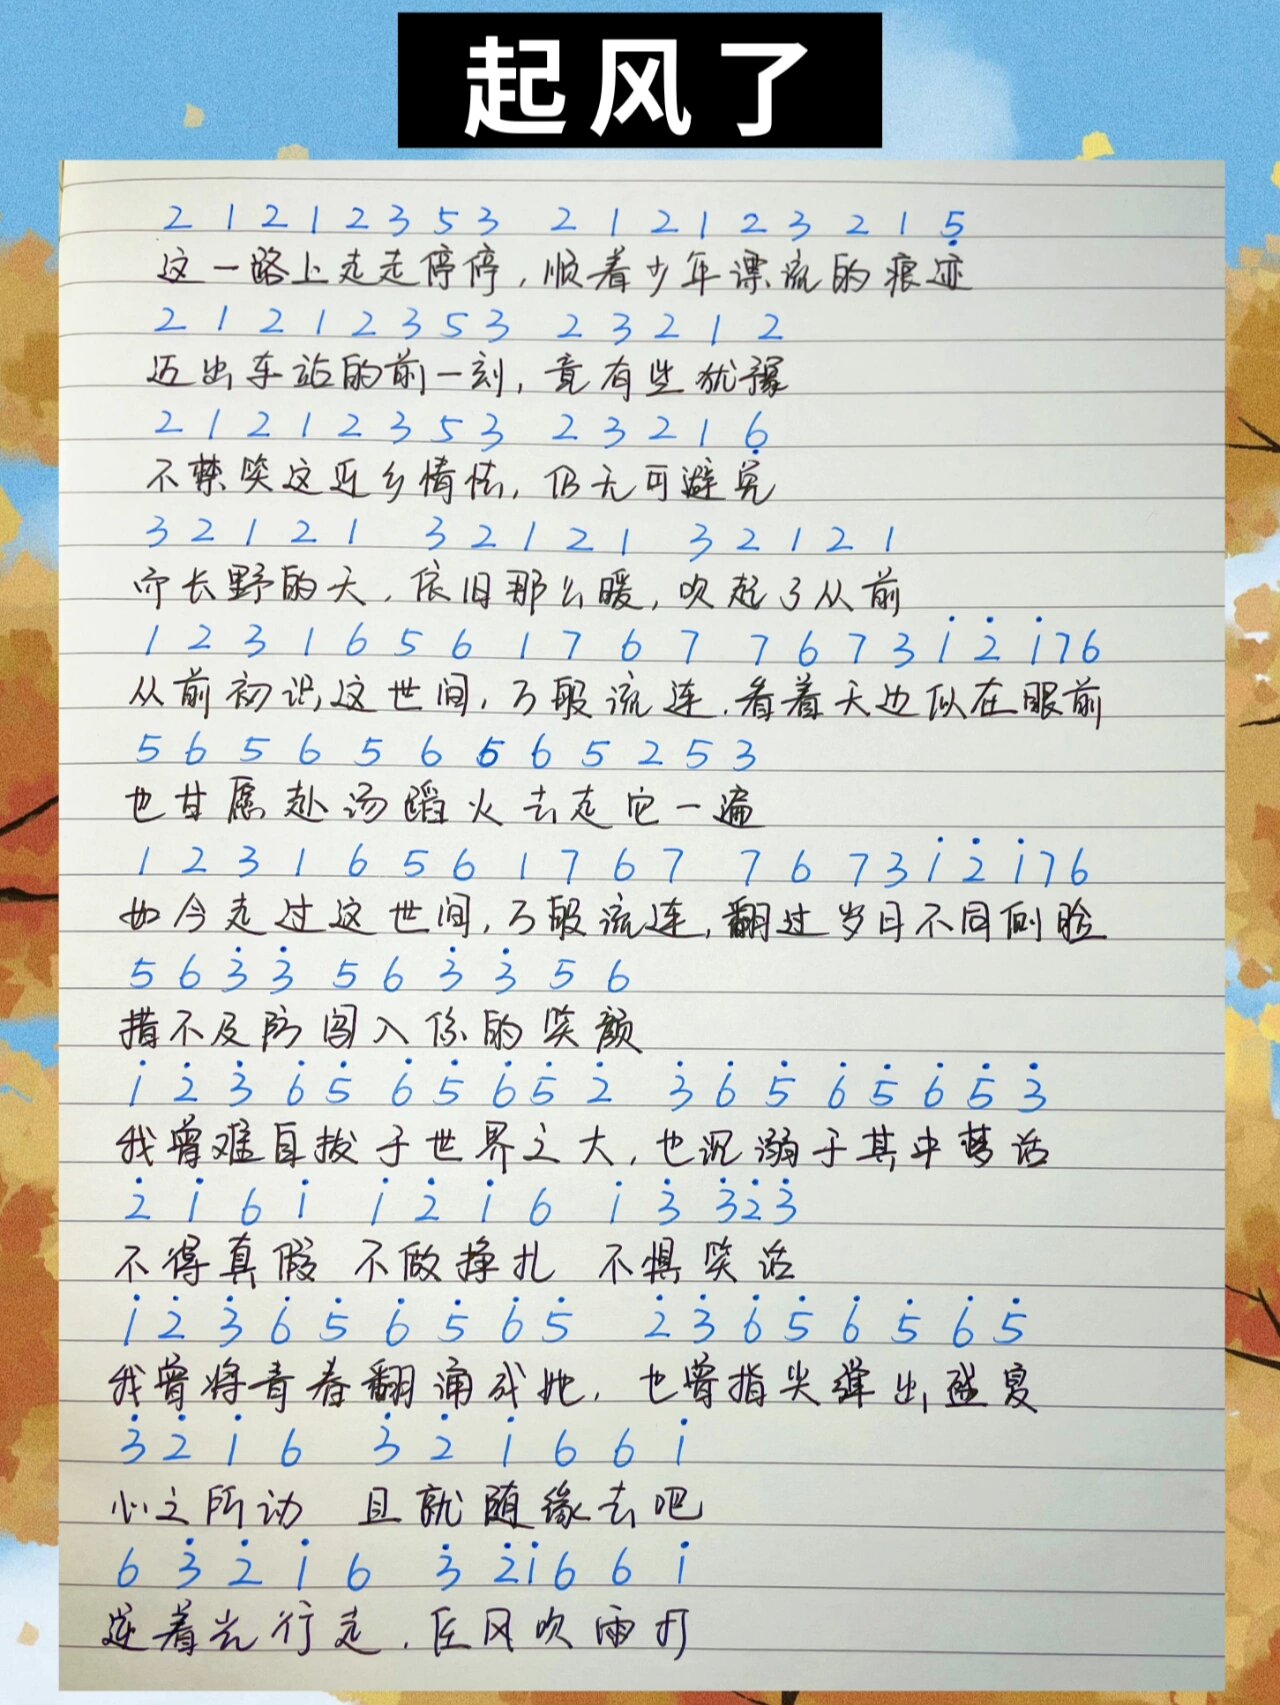 起风了
2 1 2 1 2 3 5 3 2 1 2 1 2 3 2 1 5̣
这一路上走走停停,顺着少年漂流的痕迹
2 1 2 1 2 3 5 3 2 3 2 1 2
迈出车站的前一刻,竟有些犹豫
2 1 2 1 2 3 5 3 2 3 2 1 6̣
不禁笑这近乡情怯,仍无可避免
3 2 1 2 1 3 2 1 2 1 3 2 1 2 1
而长野的天,依旧那么暖,吹起了从前
1 2 3 1 6 5 6 1 7 6 7 7 6 7 3 1̇ 2̇ 1̇ 7 6
从前初识这世间,万般流连,看着天边似在眼前
5 6 5 6 5 6 5 6 5 2 5 3
也甘愿赴汤蹈火去走它一遍
1 2 3 1 6 5 6 1 7 6 7 7 6 7 3 1̇ 2̇ 1̇ 7 6
如今走过这世间,万般流连,翻过岁月不同侧脸
5 6 3̇ 3̇ 5 6 3̇ 3̇ 5 6
措不及防闯入你的笑颜
1̇ 2̇ 3̇ 6̇ 5̇ 6̇ 5̇ 6̇ 5̇ 2̇ 3̇ 6̇ 5̇ 6̇ 5̇ 6̇ 5̇ 3̇
我曾难自拔于世界之大,也沉溺于其中梦话
2̇ 1̇ 6 1̇ 1̇ 2̇ 1̇ 6 1̇ 3̇ 3̇ 2̇ 3̇
不得真假 不做挣扎 不惧笑话
1̇ 2̇ 3̇ 6̇ 5̇ 6̇ 5̇ 6̇ 5̇ 2̇ 3̇ 6̇ 5̇ 6̇ 5̇ 6̇ 5̇
我曾将青春翻涌成她,也曾指尖弹出盛夏
3̇ 2̇ 1̇ 6 3̇ 2̇ 1̇ 6 6 1̇
心之所动 且就随缘去吧
6 3̇ 2̇ 1̇ 6 3̇ 2̇ 1̇ 6 6 1̇
逆着光行走,任风吹雨打